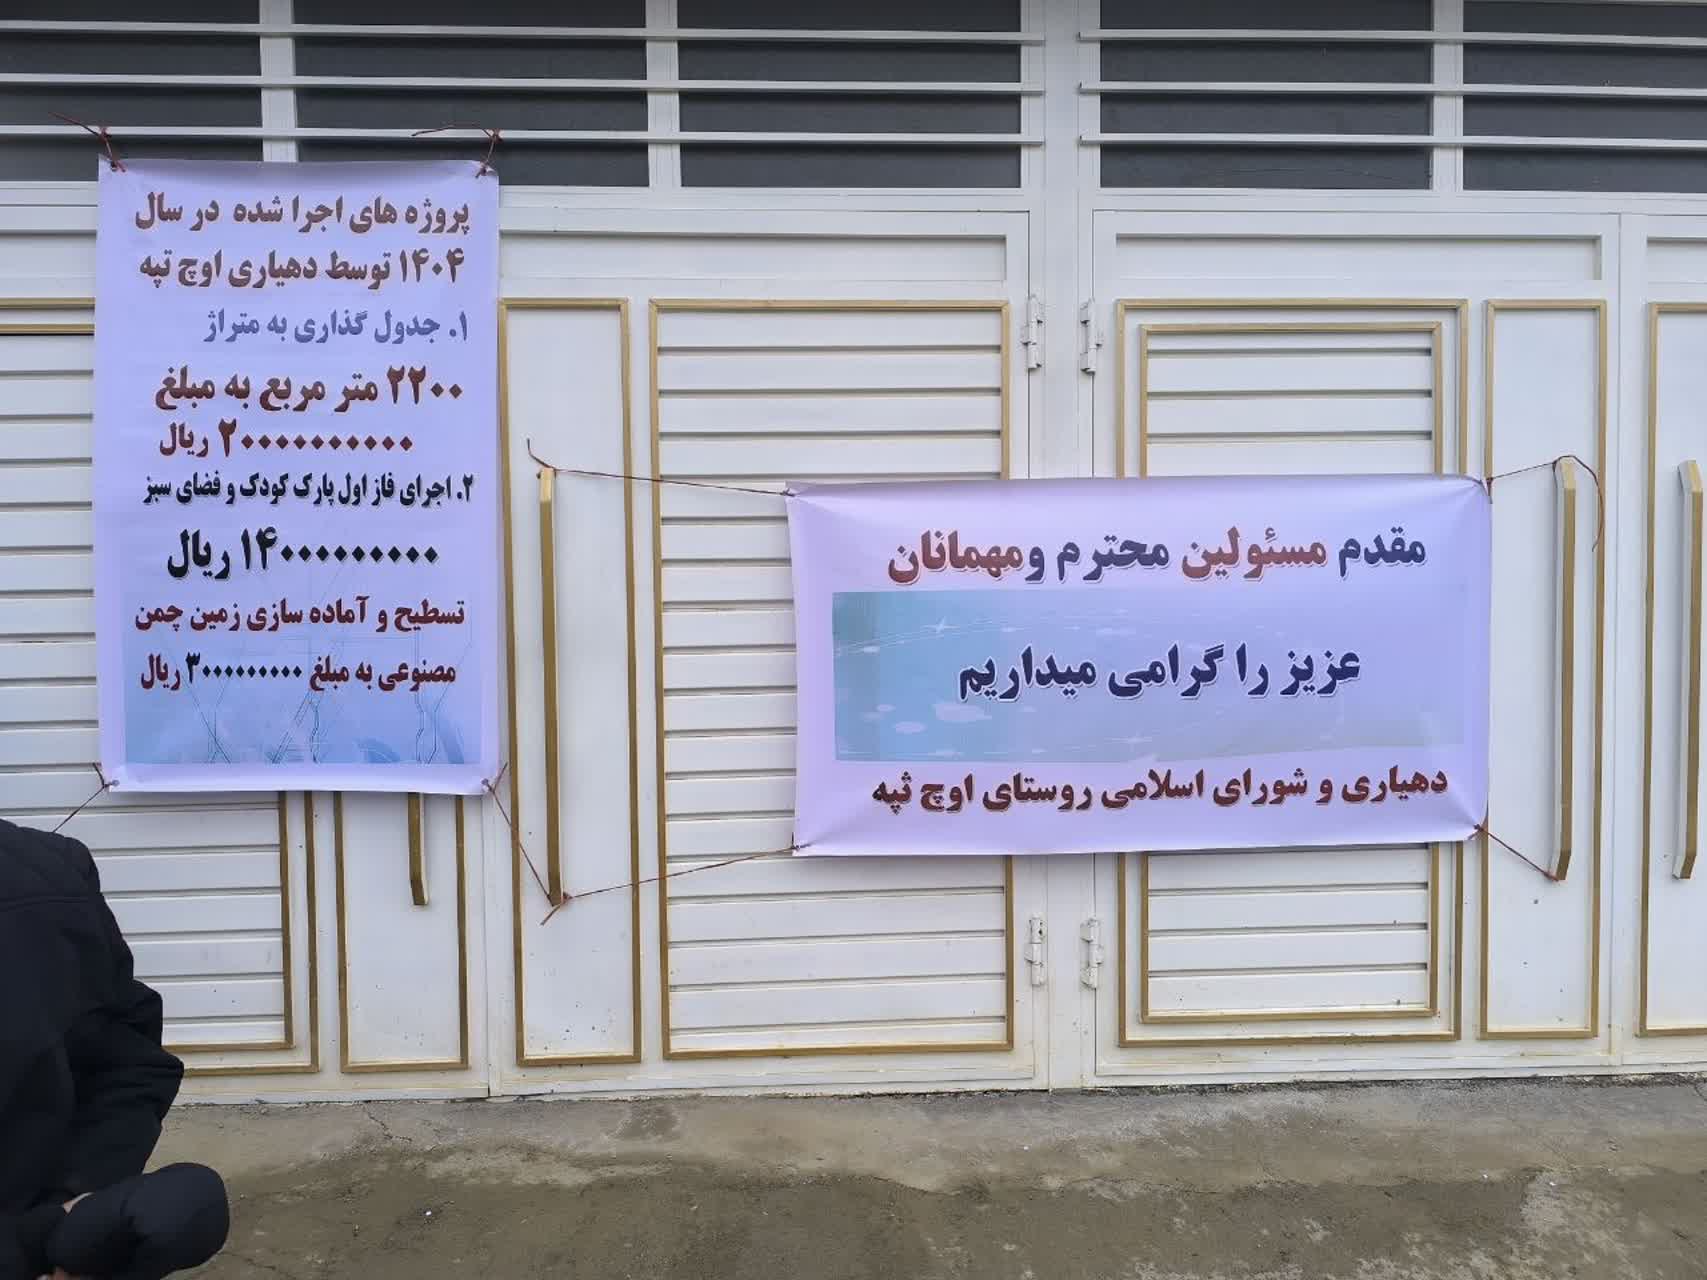 مقدم مسئولین محترم ومهمانان
عزیز را گرامی میداریم
دهیاری و شورای اسلامی روستای اوچ تپه
پروژه های اجرا شده در سال
۱۴۰۴ توسط دهیاری اوچ تپه
۱. جدول گذاری به متراژ
۲۲۰۰ متر مربع به مبلغ
۲۰۰۰۰۰۰۰۰۰۰ ریال
۲. اجرای فاز اول پارک کودک و فضای سبز
۱۴۰۰۰۰۰۰۰۰۰ ریال
تسطیح و آماده سازی زمین چمن
مصنوعی به مبلغ ۳۰۰۰۰۰۰۰۰۰ ریال